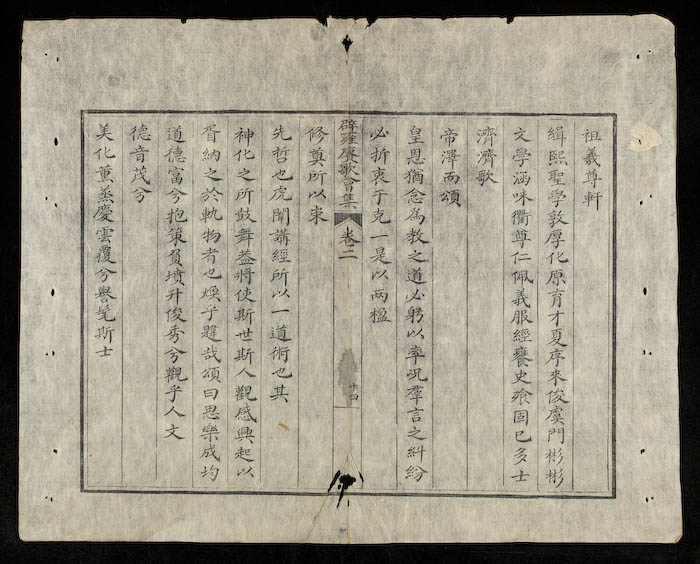 祖羲尊軒
緝熙聖學敦厚化原育才夏序來俊虞門彬彬
文學涵味衢尊仁佩義服經饔史飧固已多士
濟濟歌
帝澤而頌
皇恩猶念為教之道必躬以率況羣言之糾紛
必折衷于克一是以兩楹
辟雍賡歌會集
卷二
十四
修奠所以來
先哲也虎闈講經所以一道術也其
神化之所鼓舞蓋將使斯世斯人觀感興起以
胥納之於軌物者也煥乎韙哉頌曰思樂成均
道德富兮抱策負墳升俊秀兮觀乎人文
德音茂兮
美化薰蒸慶雲覆兮譽髦斯士